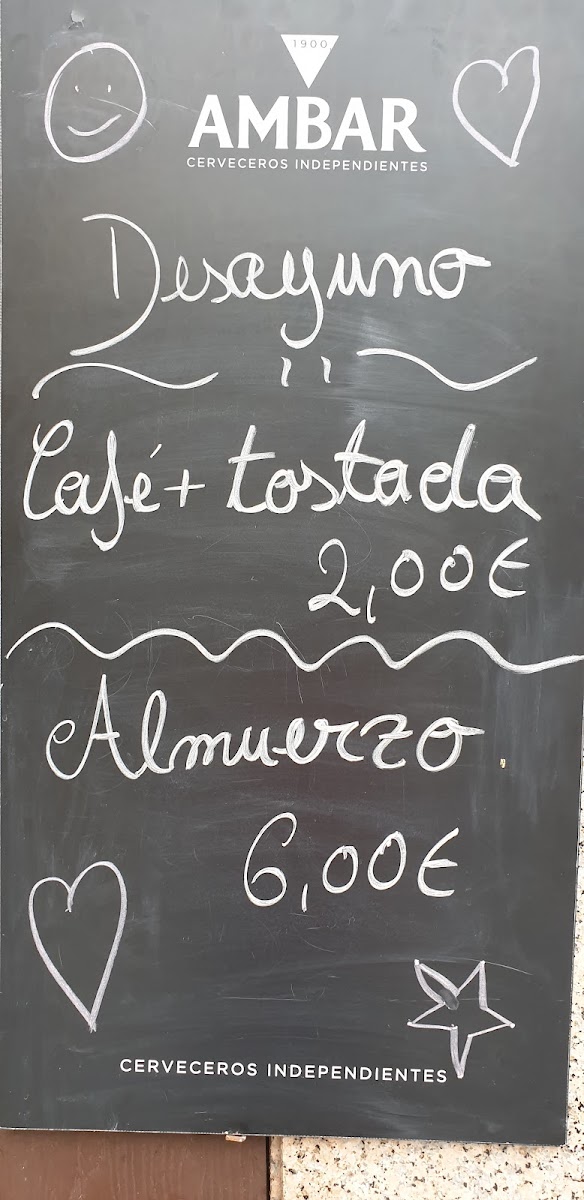 1900
AMBAR
CERVECEROS INDEPENDIENTES
Desayuno
Café + tostada
2,00€
Almuerzo
6,00€
CERVECEROS INDEPENDIENTES